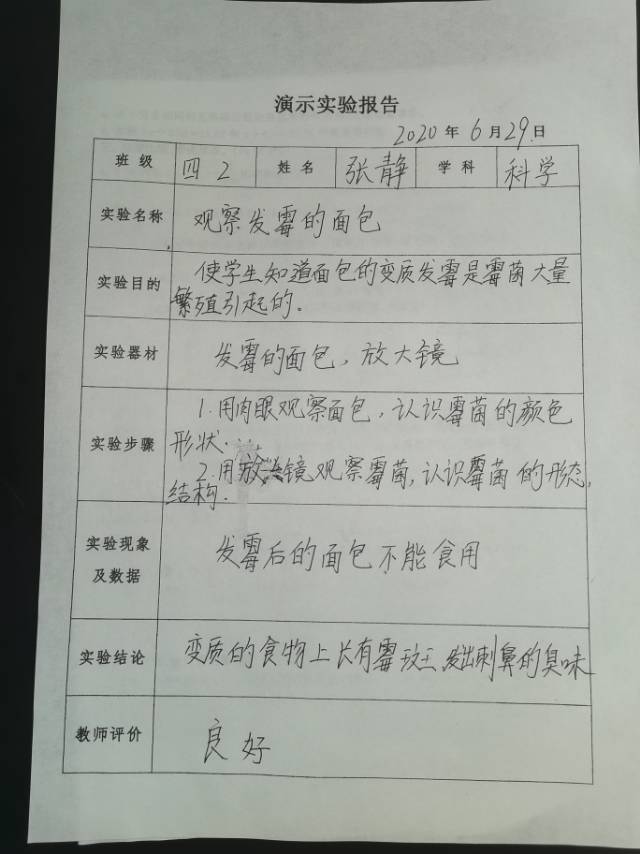 演示实验报告
2020年6月29日
班级 四2 姓名 张静 学科 科学
实验名称 观察发霉的面包
实验目的 使学生知道面包的变质发霉是霉菌大量
繁殖引起的.
实验器材 发霉的面包，放大镜
实验步骤 1.用肉眼观察面包，认识霉菌的颜色
形状.
2.用放大镜观察霉菌，认识霉菌的形态，
结构.
实验现象
及数据 发霉后的面包不能食用
实验结论 变质的食物上长有霉斑，发出刺鼻的臭味
教师评价 良好